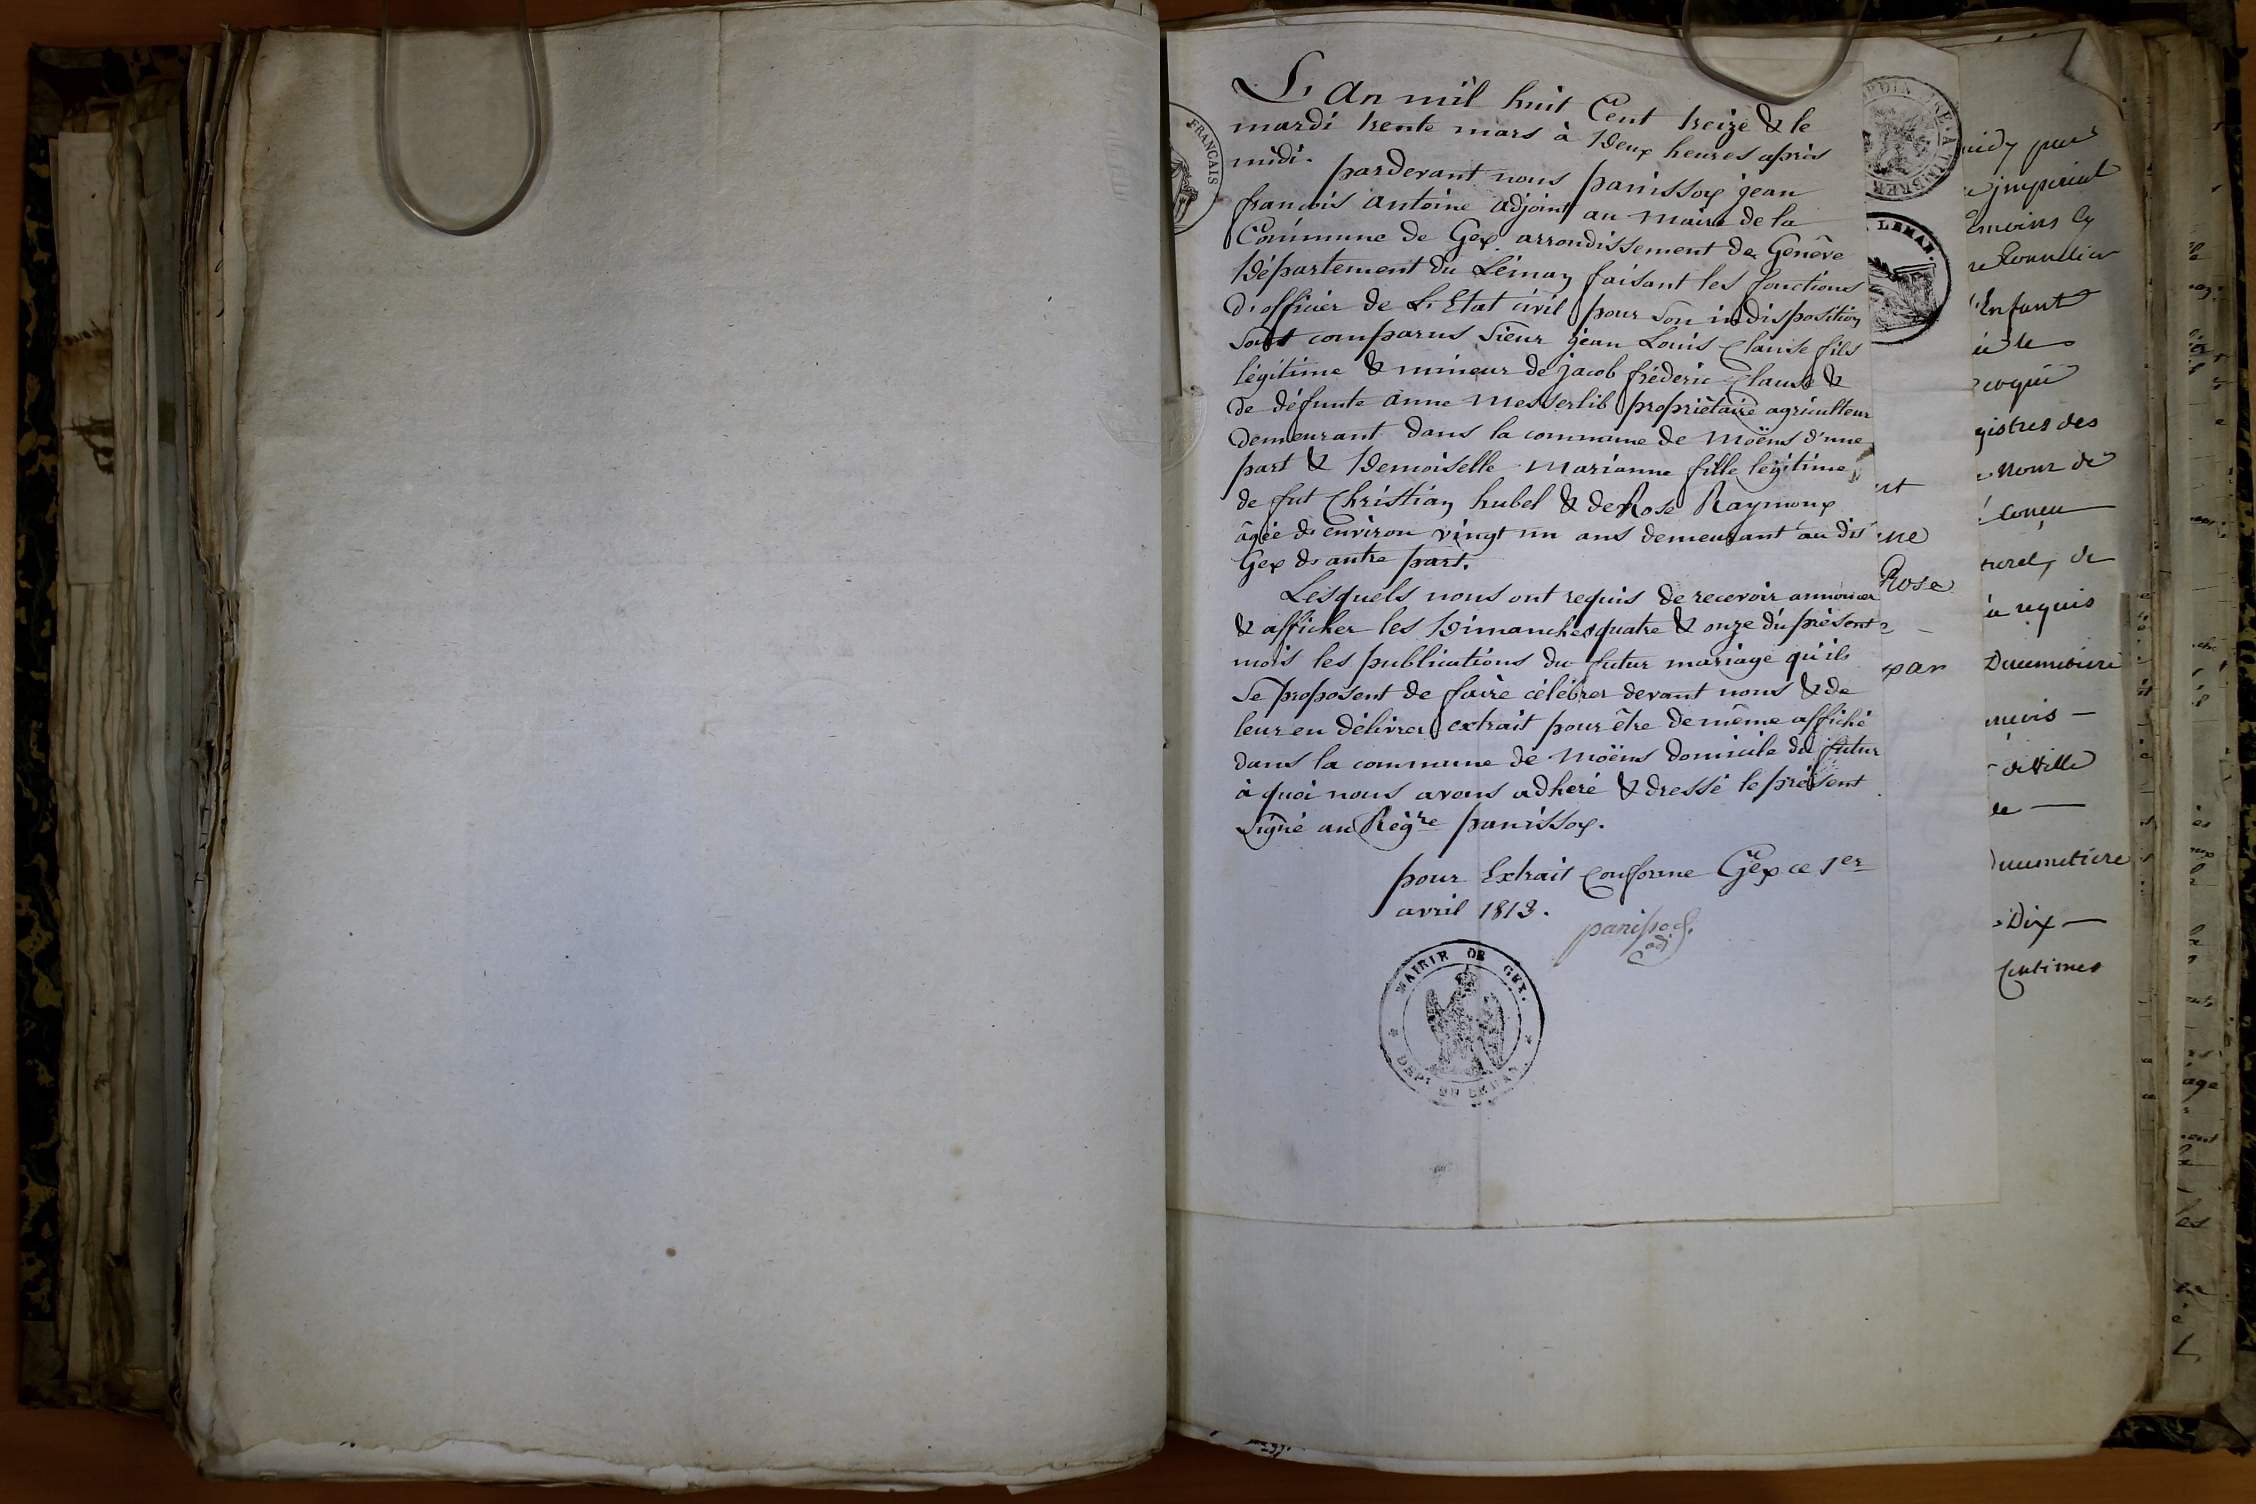 L'An mil huit Cent treize & le
mardi trente mars à Deux heures après
midi. pardevant nous panissox jean
françois antoine adjoint au maire de la
Commune de Gex arrondissement de Genêve
Département du Léman faisant les fonctions
d'officier de L'Etat civil pour son indisposition
sont comparus Sieur jean Louis Clause fils
légitime & mineur de jacob fréderic Clause &
de défunte anne Messerlib propriètaire agriculteur
demeurant dans la commune de Moëns d'une
part & Demoiselle Marianne fille legitime
de fut Christian hubel & de Rose Raymoux
âgée d'environ vingt un ans demeurant au dit
Gex d'autre part.
Lesquels nous ont requis de recevoir annoncer
& afficher les Dimanches quatre & onze du présent
mois les publications du futur mariage qu'ils
se proposent de faire célébrer devant nous & de
leur en délivrer extrait pour être de même affiché
dans la commune de Moëns domicile du futur
à quoi nous avons adhéré & dressé le présent
signé au Règre panissox.
pour Extrait Conforme Gex ce 1er
avril 1813.
panissod.
adj
MAIRIE DE GEX.
DEPT DU LEMAN
FRANCAIS
A TIMBRER
LEMAN.
ne
Rose
par
pur
imperial
Enfant
gistres des
Nom de
conçu
turel, de
à requis
Ducimetière
de Ville
Ducimetiere
Dix
Centimes